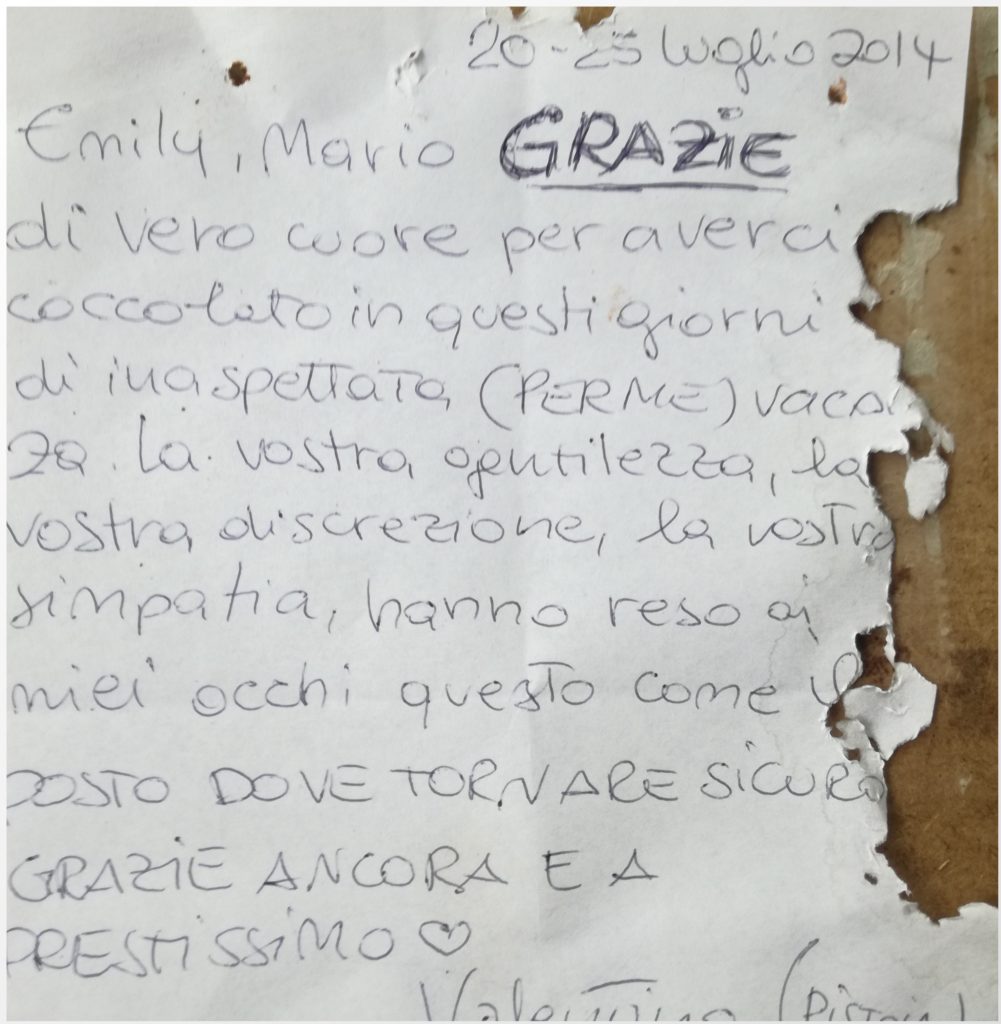 20-25 luglio 2014
Emily, Mario GRAZIE
di vero cuore per averci
coccolato in questi giorni
di inaspettata (PER ME) vacan
za. La vostra gentilezza, la
vostra discrezione, la vostra
simpatia, hanno reso ai
miei occhi questo come il
POSTO DOVE TORNARE SICURO
GRAZIE ANCORA E A
PRESTISSIMO ♡
(Pistoia)